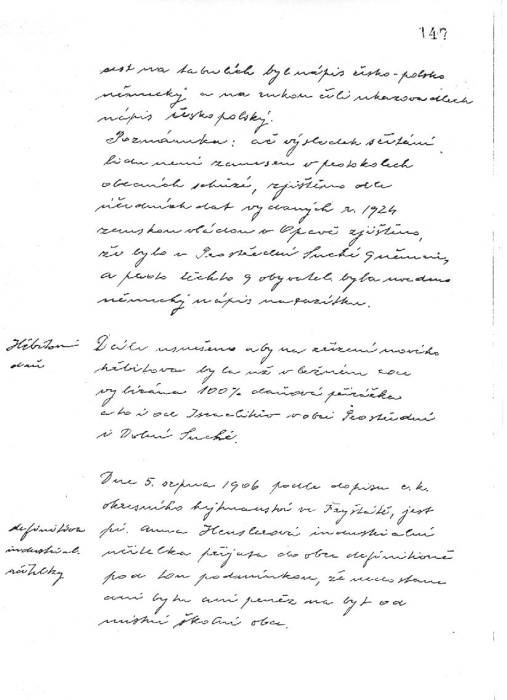 147
jest na tabulích byl nápis česko-polsko
německý a na rukou čili ukazovadlech
nápis česko polský.
Poznámka: ač výsledek sčítání
lidu není zanesen v protokolech
obecních schůzí, zjištěno dle
úředních dat vydaných r. 1924
zemskou vládou v Opavě zjištěno,
že bylo v Prostřední Suché 9 němců,
a proto těchto 9 obyvatel byla
německý nápis na
Hřbitovní
daň
Dále usneseno aby na zřízení nového
hřbitova byla už v běžném roce
vybírána 100% daňová přirážka
a to i od Israelitův v obci Prostřední
i Dolní Suché.
Dne 5. srpna 1906 podle dopisu c.k.
okresního hejtmanství ve Fryštátě, jest
definitiva
industrial.
učitelky
pí. Anna Henslerová industrialní
učitelka přijata do obce definitivně
pod tou podmínkou, že nedostane
ani bytu ani peněz na byt od
místní školní obce.